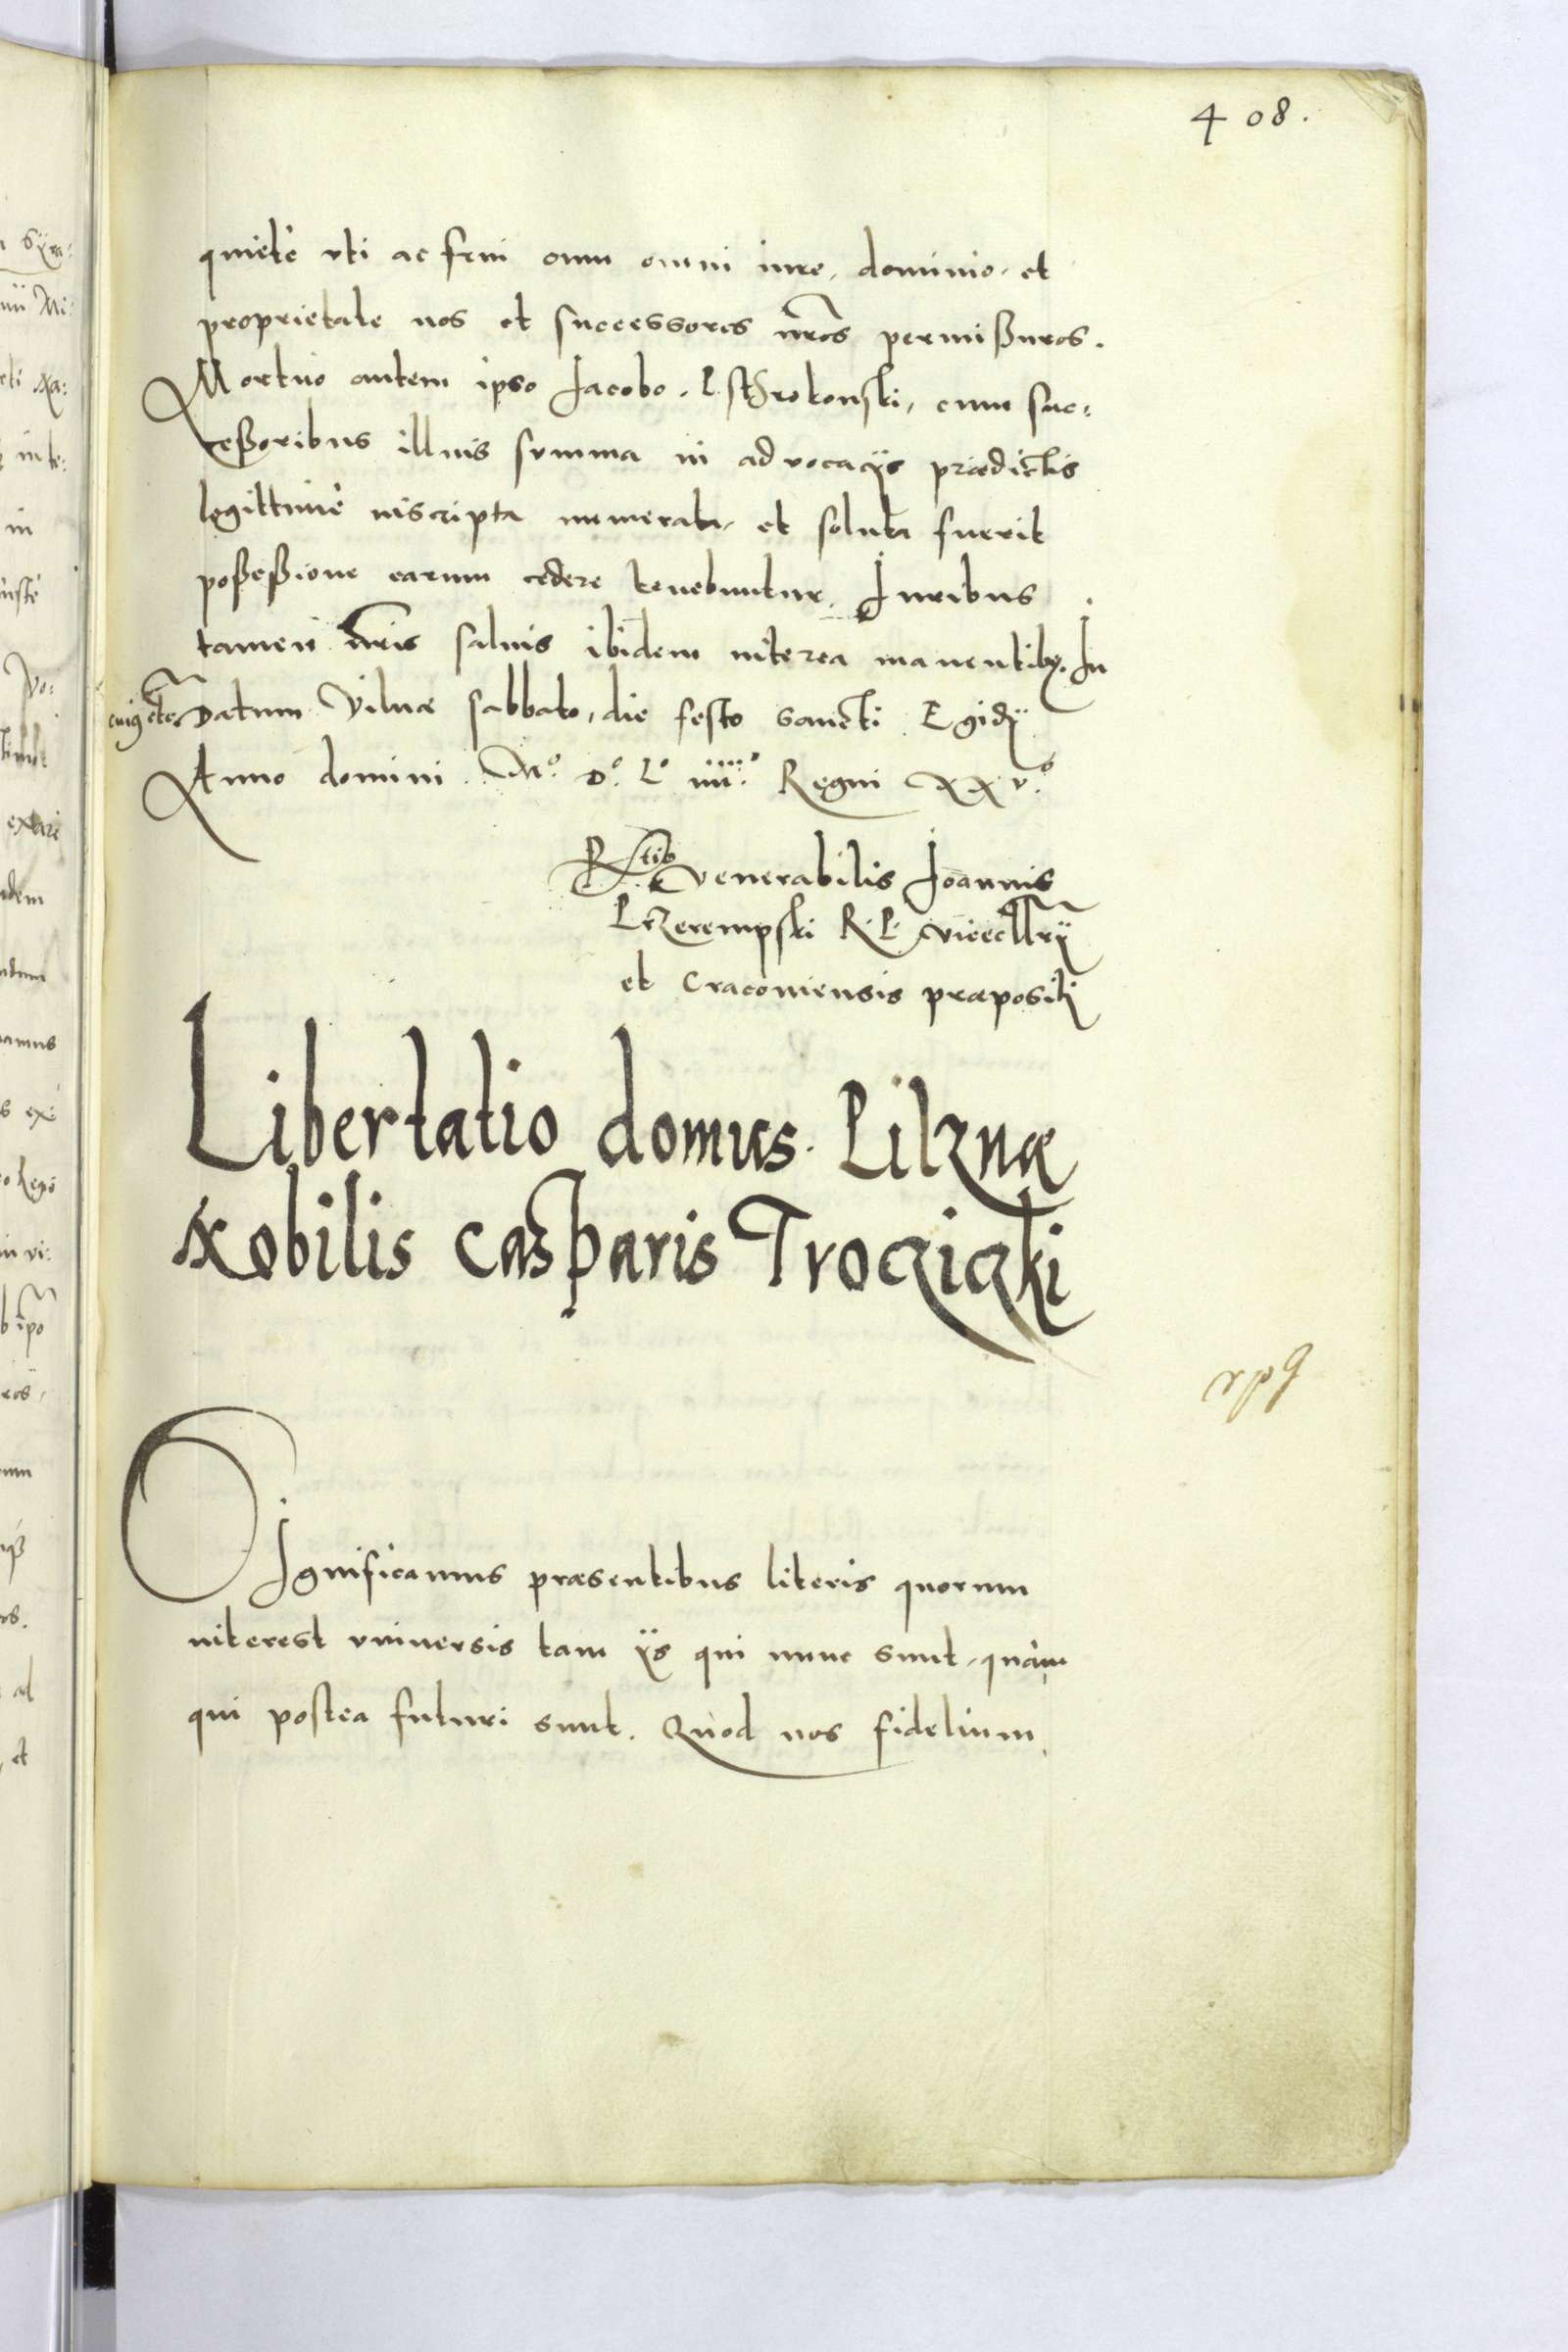 408.
quietè vti ac frui cum omni iure, dominio, et
proprietate nos et successores nr̃os permißuros.
Mortuo autem ipso Jacobo. Psthrokonski, cum suc:
ceßoribus illius summa in advocacijs prædictis
legittimè inscripta numerata, et soluta fuerit
poßeßione earum cedere tenebuntur. Juribus
tamen nr̃is saluis ibidem interea manentibꝫ. In
cuiꝰ etc. Datum Vilnæ sabbato, die festo sancti Egidij
Anno domini. Mº. Dº. Lº iiiiº. Regni XXvº.
Rtio venerabilis Joannis
Przerempski R. P. vicecllr̃ij
et Cracouiensis præpositi
Libertatio domus. Pilznæ
Nobilis Casparis Trocziczki
Significamus præsentibus literis quorum
interest vniuersis tam ijs qui nunc sunt, quàm
qui postea futuri sunt. Quod nos fidelium